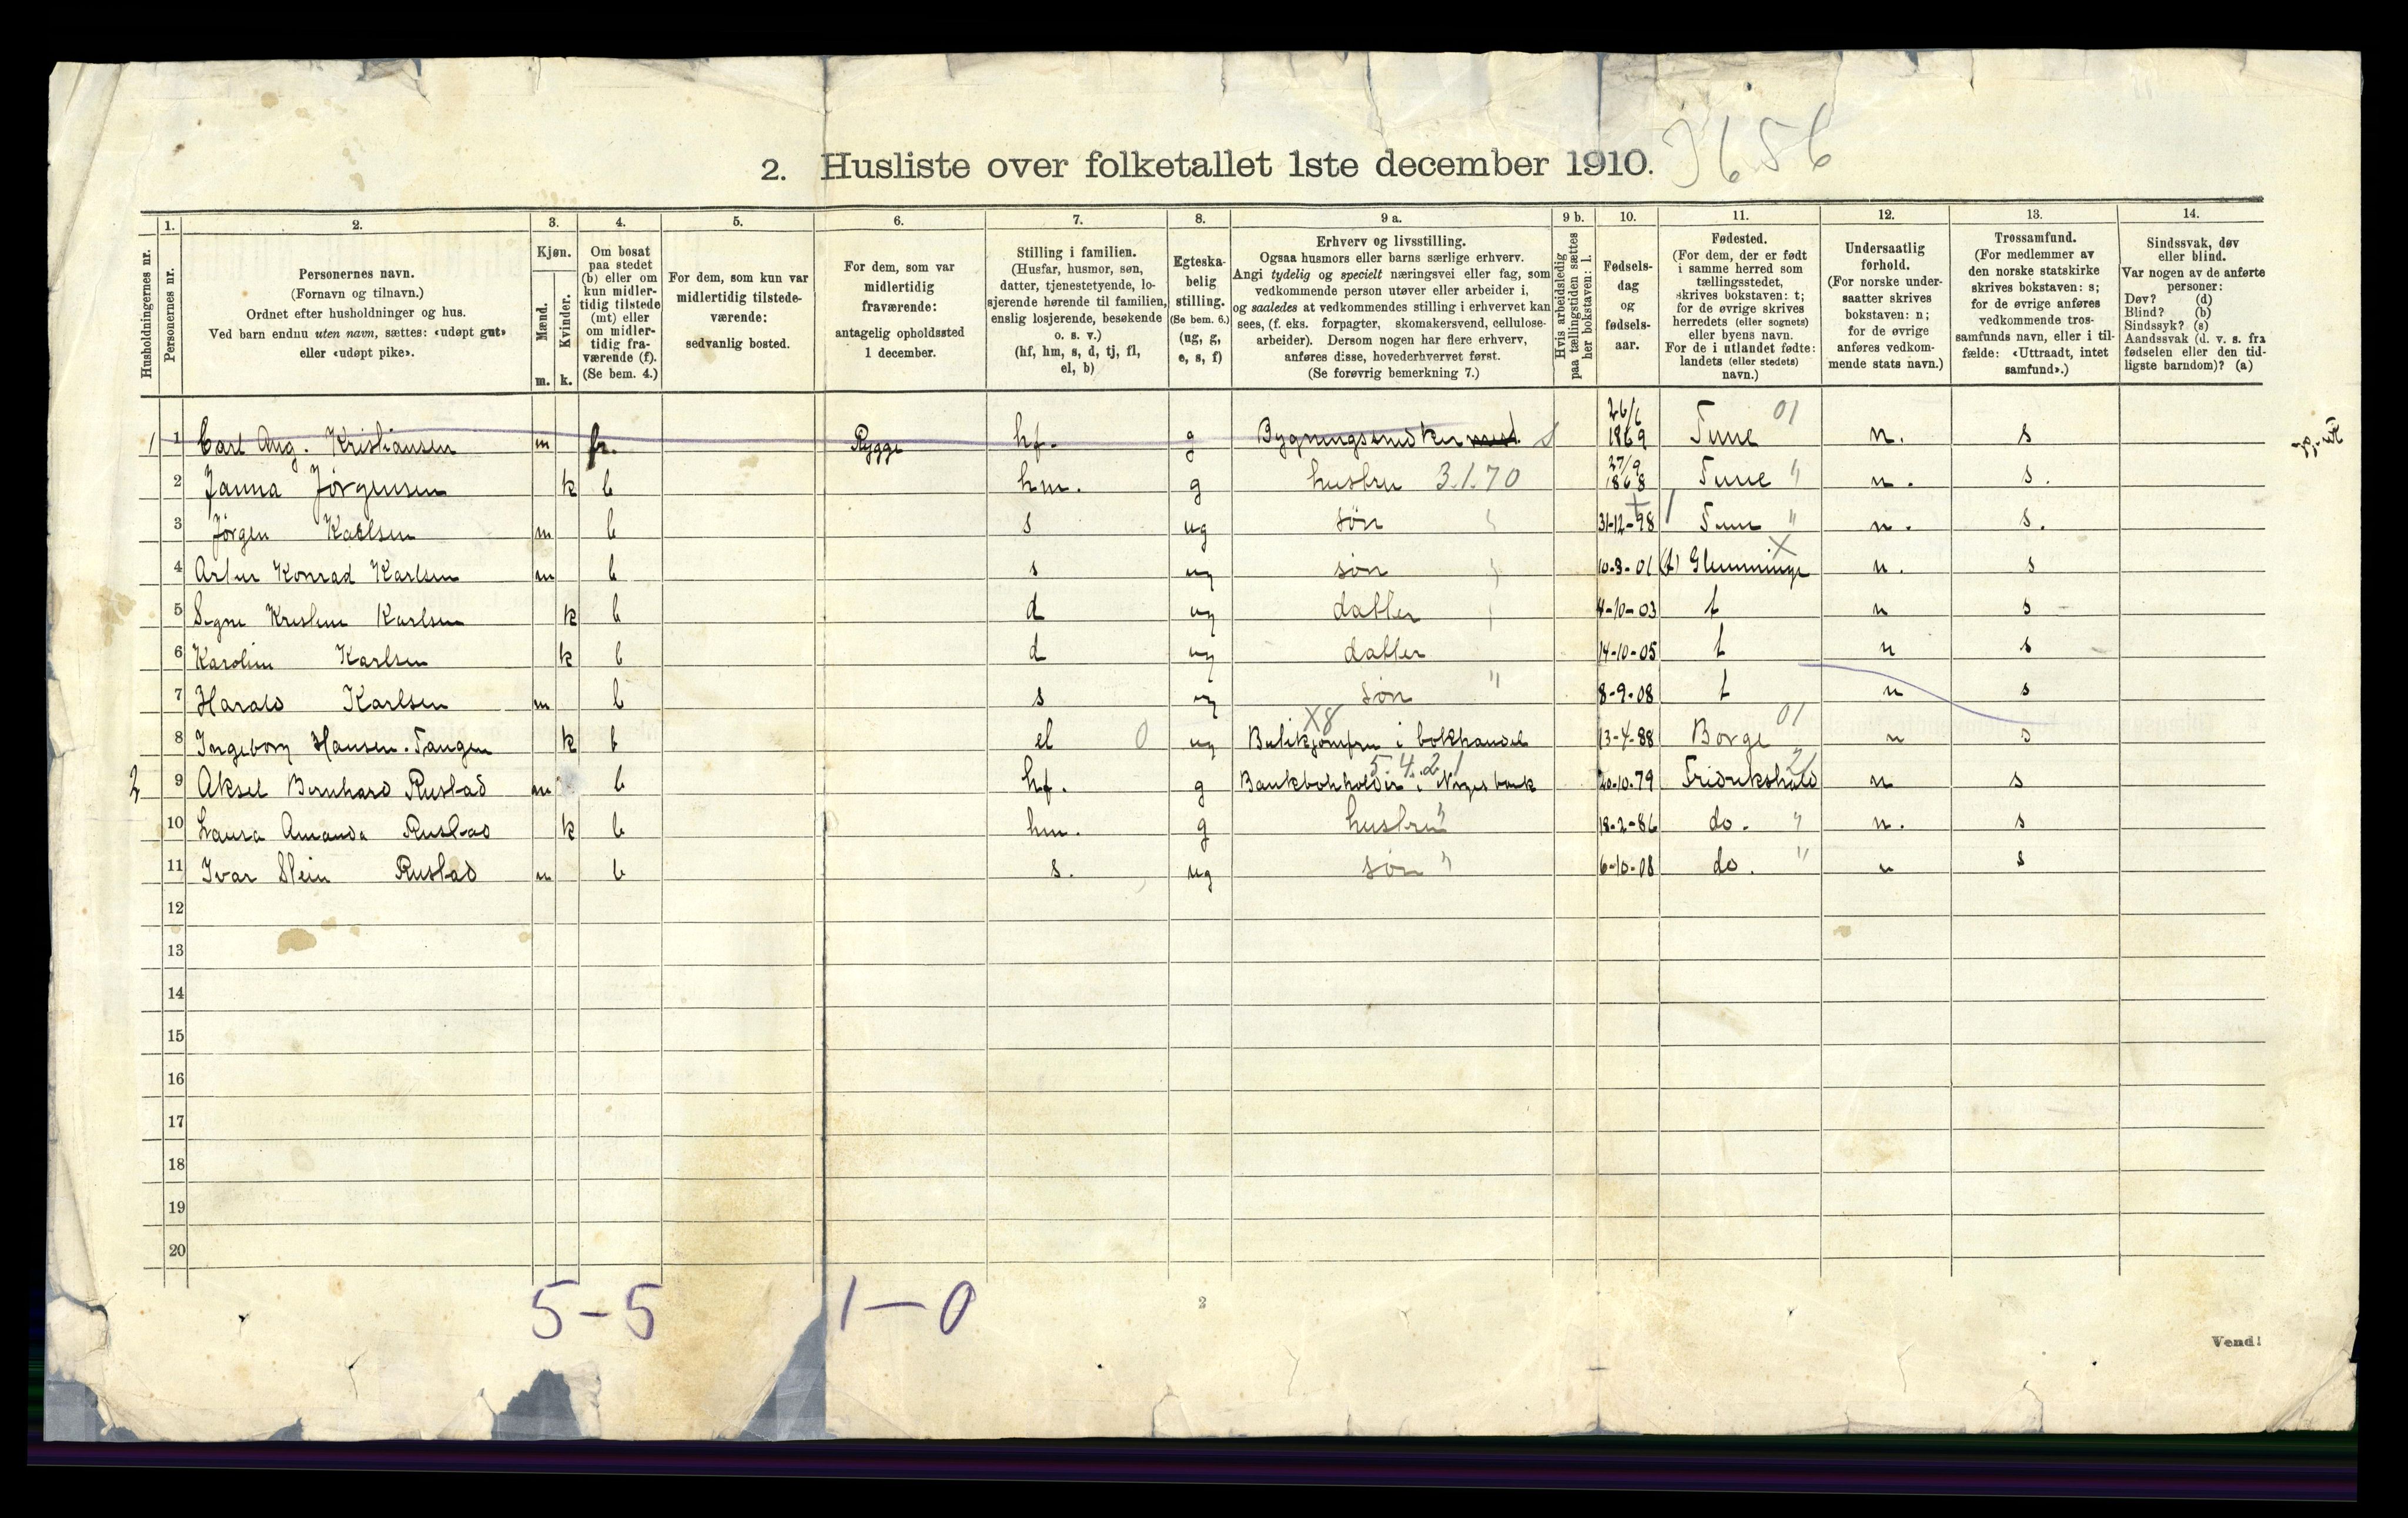 2. Husliste over folketallet 1ste december 1910.
Husholdningernes nr.
1. Personernes nr.
2. Personernes navn.
(Fornavn og tilnavn.)
Ordnet efter husholdninger og hus.
Ved barn endnu uten navn, sættes: «udøpt gut»
eller «udøpt pike».
3. Kjøn.
Mænd. m.
Kvinder. k.
4. Om bosat
paa stedet
(b) eller om
kun midler-
tidig tilstede
(mt) eller
om midler-
tidig fra-
værende (f).
(Se bem. 4.)
5. For dem, som kun var
midlertidig tilstede-
værende:
sedvanlig bosted.
6. For dem, som var
midlertidig
fraværende:
antagelig opholdssted
1 december.
7. Stilling i familien.
(Husfar, husmor, søn,
datter, tjenestetyende, lo-
sjerende hørende til familien,
enslig losjerende, besøkende
o. s. v.)
(hf, hm, s, d, tj, fl,
el, b)
8. Egteska-
belig
stilling.
(Se bem. 6.)
(ug, g,
e, s, f)
9 a. Erhverv og livsstilling.
Ogsaa husmors eller barns særlige erhverv.
Angi tydelig og specielt næringsvei eller fag, som
vedkommende person utøver eller arbeider i,
og saaledes at vedkommendes stilling i erhvervet kan
sees, (f. eks. forpagter, skomakersvend, cellulose-
arbeider). Dersom nogen har flere erhverv,
anføres disse, hovederhvervet først.
(Se forøvrig bemerkning 7.)
9 b. Hvis arbeidsledig
paa tællingstiden sættes
her bokstaven: l.
10. Fødsels-
dag
og
fødsels-
aar.
11. Fødested.
(For dem, der er født
i samme herred som
tællingsstedet,
skrives bokstaven: t;
for de øvrige skrives
herredets (eller sognets)
eller byens navn.
For de i utlandet fødte:
landets (eller stedets)
navn.)
12. Undersaatlig
forhold.
(For norske under-
saatter skrives
bokstaven: n;
for de øvrige
anføres vedkom-
mende stats navn.)
13. Trossamfund.
(For medlemmer av
den norske statskirke
skrives bokstaven: s;
for de øvrige anføres
vedkommende tros-
samfunds navn, eller i til-
fælde: «Uttraadt, intet
samfund».)
14. Sindssvak, døv
eller blind.
Var nogen av de anførte
personer:
Døv? (d)
Blind? (b)
Sindssyk? (s)
Aandssvak (d. v. s. fra
fødselen eller den tid-
ligste barndom)? (a)
1 1 Carl Aug. Kristiansen m fr. Rygge hf. g Bygningssnedker 26/6 1869 Tune 01 n. s
2 Janna Jørgensen k b hm. g hustru 3.1.70 27/9 1868 Tune " n. s.
3 Jørgen Karlsen m b s ug søn " 31-12-98 Tune " n. s.
4 Artur Konrad Karlsen m b s ug søn " 10-3-01 (t) Glemminge n. s
5 Signe Kristine Karlsen k b d ug datter " 4-10-03 t n s
6 Karoline Karlsen k b d ug datter 14-10-05 t n s
7 Harald Karlsen m b s ug søn " 8-9-08 t n s
8 Ingeborg Hansen-Tangen k b el 0 ug Butikjomfru i bokhandel X8 13-4-88 Borge 01 n s
2 9 Aksel Bernhard Rustad m b hf. g Bankbokholder i Norges bank 5.4.2.1 20-10-79 Fredrikshald 21 n s
10 Laura Amanda Rustad k b hm. g hustru " 18-2-86 do. " n. s
11 Ivar Stein Rustad m b s. ug søn " 6-10-08 do. " n s
12
13
14
15
16
17
18
19
20
5-5 1-0
2
Vend!